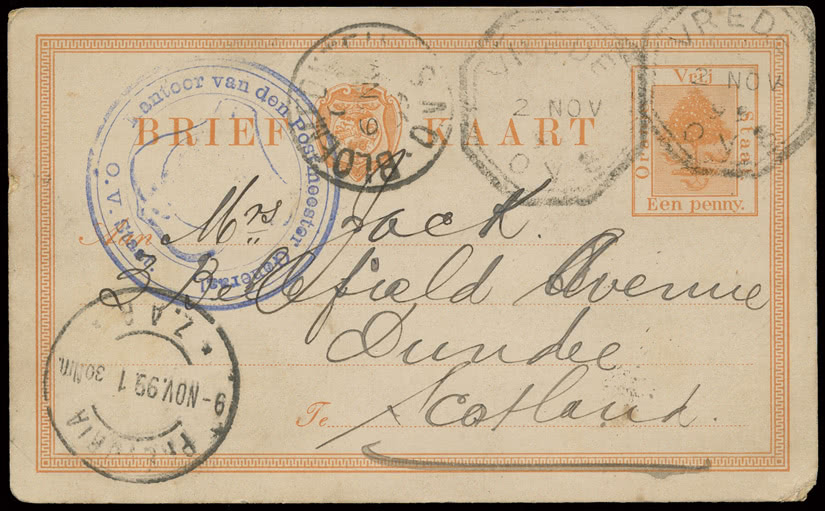 VREDE
2 NOV
O.V.S.
VREDE
2 NOV
99
O.V.S.
BRIEF KAART
Vrij
Oranje
Staat
Een penny.
Kantoor van den Postmeester Generaal
O.V.S.
BLOEMFONTEIN
O.V.S.
Aan Mrs Jack.
2 Bellefield Avenue
Dundee
Te Scotland.
PRETORIA
9-NOV.99.1
30 Nm.
Z.A.R.